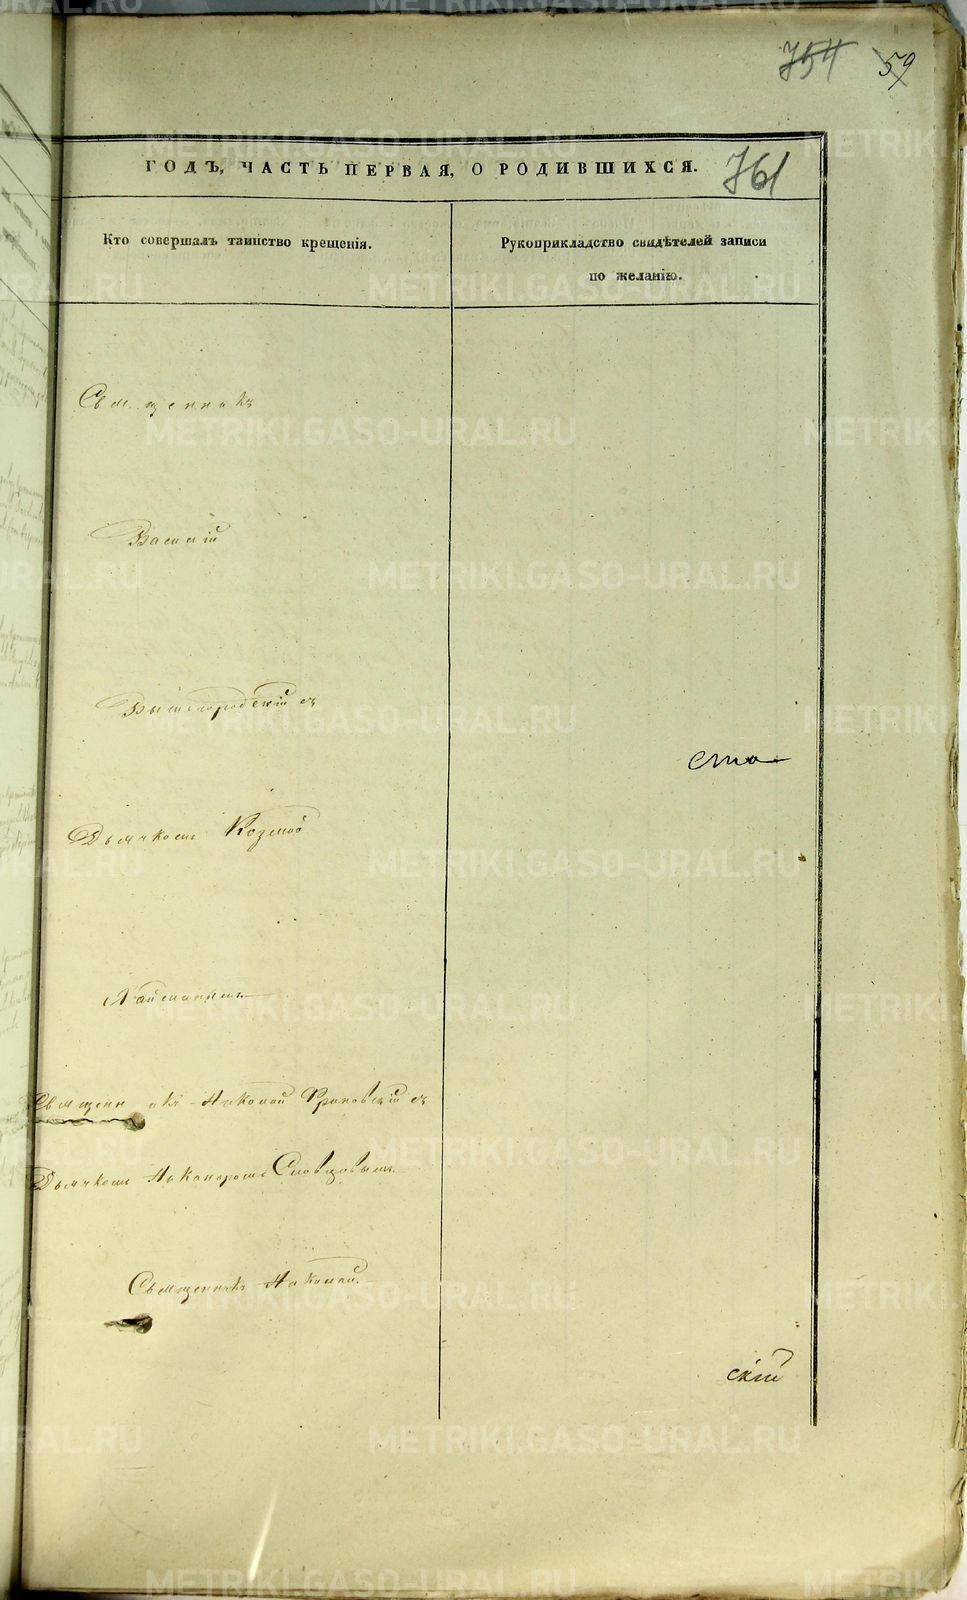 754 59
ГОДЪ, ЧАСТЬ ПЕРВАЯ, О РОДИВШИХСЯ. 761
Кто совершалъ таинство крещенія.
Рукоприкладство свидѣтелей записи
по желанію.
Священникъ
Василій
Вышегородскій съ
Дьячкомъ Козмою
Священникъ Николай съ
Дьячкомъ Никаноромъ Словцовымъ
Священникъ Николай
скій
METRIKI.GASO-URAL.RU